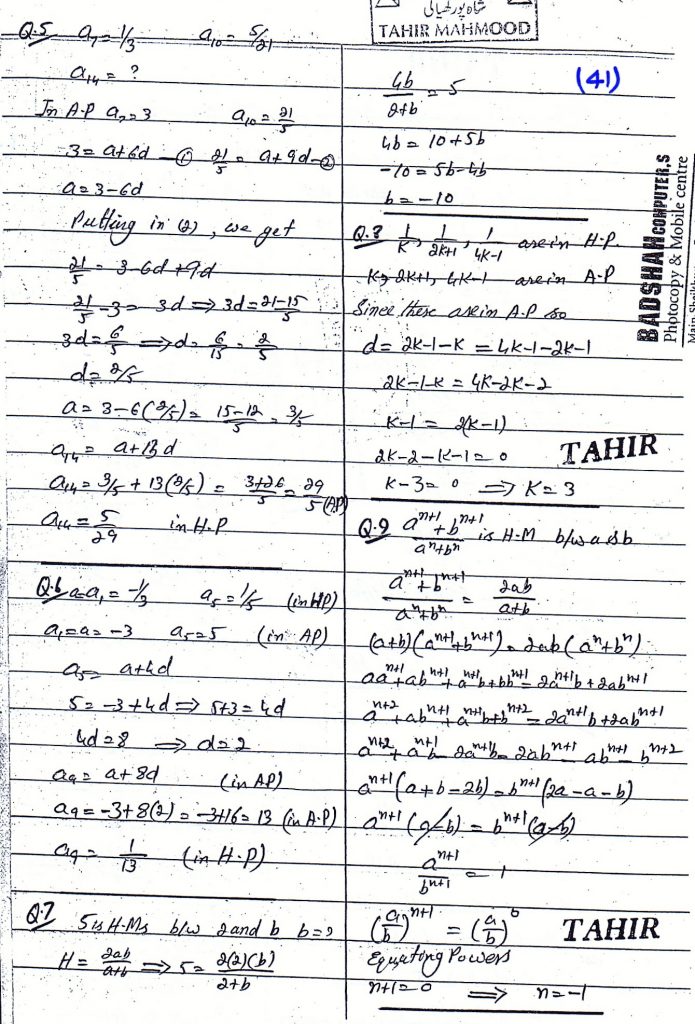 شاہ پور بھیالی
TAHIR MAHMOOD
Q.5 a₇ = 1/3 a₁₀ = 5/21
a₁₄ = ?
In A.P a₇ = 3 a₁₀ = 21/5
3 = a+6d —① 21/5 = a+9d —②
a = 3-6d
Putting in (2), we get
21/5 = 3-6d+9d
21/5 - 3 = 3d ⇒ 3d = 21-15/5
3d = 6/5 ⇒ d = 6/15 = 2/5
d = 2/5
a = 3-6(2/5) = 15-12/5 = 3/5
a₁₄ = a+13d
a₁₄ = 3/5 + 13(2/5) = 3+26/5 = 29/5 (AP)
a₁₄ = 5/29 in H.P
Q.6 a=a₁ = -1/3 a₅ = 1/5 (in HP)
a₁=a= -3 a₅=5 (in AP)
a₅= a+4d
5 = -3+4d ⇒ 5+3 = 4d
4d=8 ⇒ d=2
a₉= a+8d (in AP)
a₉= -3+8(2) = -3+16= 13 (in A.P)
a₉= 1/13 (in H.P)
Q.7 5 is H.Ms b/w 2 and b b=?
H = 2ab/a+b ⇒ 5 = 2(2)(b)/2+b
(41)
4b/2+b = 5
4b = 10+5b
-10 = 5b-4b
b = -10
Q.8 1/K, 1/2K+1, 1/4K-1 are in H.P.
K, 2K+1, 4K-1 are in A.P
Since these are in A.P so
d = 2K-1-K = 4K-1-2K-1
2K-1-K = 4K-2K-2
K-1 = 2(K-1)
2K-2-K-1 = 0
K-3 = 0 ⇒ K = 3
TAHIR
Q.9 aⁿ⁺¹+bⁿ⁺¹/aⁿ+bⁿ is H.M b/w a & b
aⁿ⁺¹+bⁿ⁺¹/aⁿ+bⁿ = 2ab/a+b
(a+b)(aⁿ⁺¹+bⁿ⁺¹) = 2ab(aⁿ+bⁿ)
aaⁿ⁺¹+abⁿ⁺¹+aⁿ⁺¹b+bbⁿ⁺¹ = 2aⁿ⁺¹b+2abⁿ⁺¹
aⁿ⁺²+abⁿ⁺¹+aⁿ⁺¹b+bⁿ⁺² = 2aⁿ⁺¹b+2abⁿ⁺¹
aⁿ⁺²+aⁿ⁺¹b-2aⁿ⁺¹b = 2abⁿ⁺¹-abⁿ⁺¹-bⁿ⁺²
aⁿ⁺¹(a+b-2b) = bⁿ⁺¹(2a-a-b)
aⁿ⁺¹(a-b) = bⁿ⁺¹(a-b)
aⁿ⁺¹/bⁿ⁺¹ = 1
(a/b)ⁿ⁺¹ = (a/b)⁰
TAHIR
Equating Powers
n+1=0 ⇒ n=-1
BADSHAH COMPUTER,S
Photocopy & Mobile centre